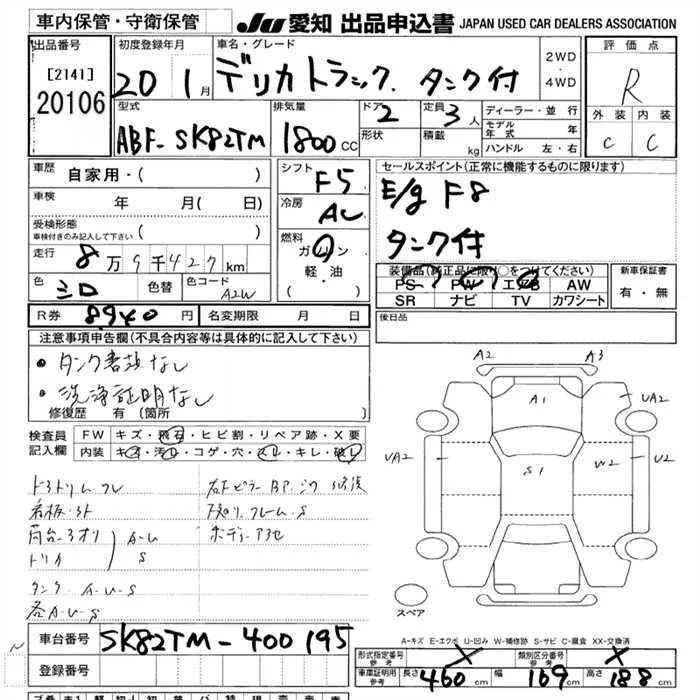 車内保管・守衛保管 JU 愛知 出品申込書 JAPAN USED CAR DEALERS ASSOCIATION
出品番号 初度登録年月 車名・グレード 2WD・4WD 評価点
[2141] 20106 20 1月 デリカトラック タンク付 R
型式 排気量 ドア 2 定員 3人 ディーラー・並行 外装 内装
ABF-SK82TM 1800CC 形状 積載 kg モデル年式 年 C C
ハンドル 左・右
車歴 自家用・( ) シフト F5 セールスポイント(正常に機能するものに限ります)
車検 年 月( 日) 冷房 AC E/g F8
受検形態 車検付きのみ記入して下さい ( ) タンク付
走行 8万9千427km 燃料 ガソリン・軽・油・( )
装備品(純正品に限り○をつけてください) 新車保証書
PS PW エアB AW 有・無
SR ナビ TV カワシート
色 シロ 色替 色コード A2W
R券 8940円 名変期限 月 日 後日品
注意事項申告欄(不具合内容等は具体的に記入して下さい)
・タンク書類なし
・洗浄証明なし
修復歴 有(箇所 )
A2 A3
A1 UA2
UA2 S1 W2 U2
検査員記入欄 FW キズ・飛石・ヒビ割・リペア跡・X要
内装 キズ・汚レ・コゲ・穴・スレ・キレ・破レ
看板・跡
荷台
A-U
S
タンク A-U-S
各A-U-S
下廻り、フレームS
スペア
A-キズ E-エクボ U-凹み W-補修跡 S-サビ C-腐食 XX-交換済
車台番号 SK82TM-400195
登録番号
形式指定番号 参考 X 類別区分番号 参考 X
車庫証明用 参考 長さ 460cm 幅 169cm 高さ 188cm